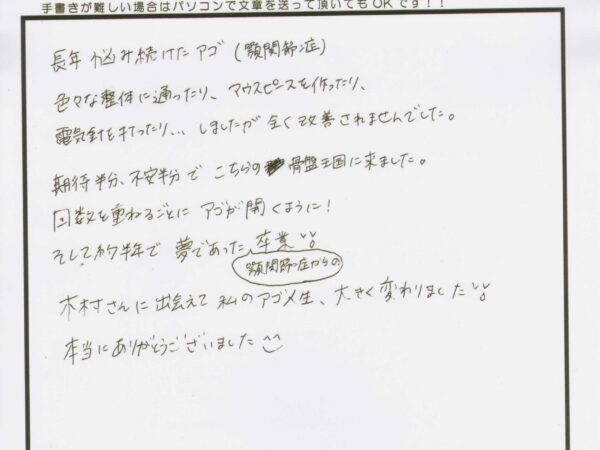 手書きが難しい場合はパソコンで文章を送って頂いてもOKです！！
長年 悩み続けたアゴ (顎関節症)
色々な整体に通ったり、マウスピースを作ったり、
電気針を打ったり... しましたが 全く改善されませんでした。
期待半分、不安半分で こちらの 骨盤王国に来ました。
回数を重ねるごとに アゴが 開くように!
そして約半年で 夢であった 卒業!!
顎関節症からの
木村さんに 出会えて 私のアゴ人生、大きく変わりました!!
本当にありがとうございました^^